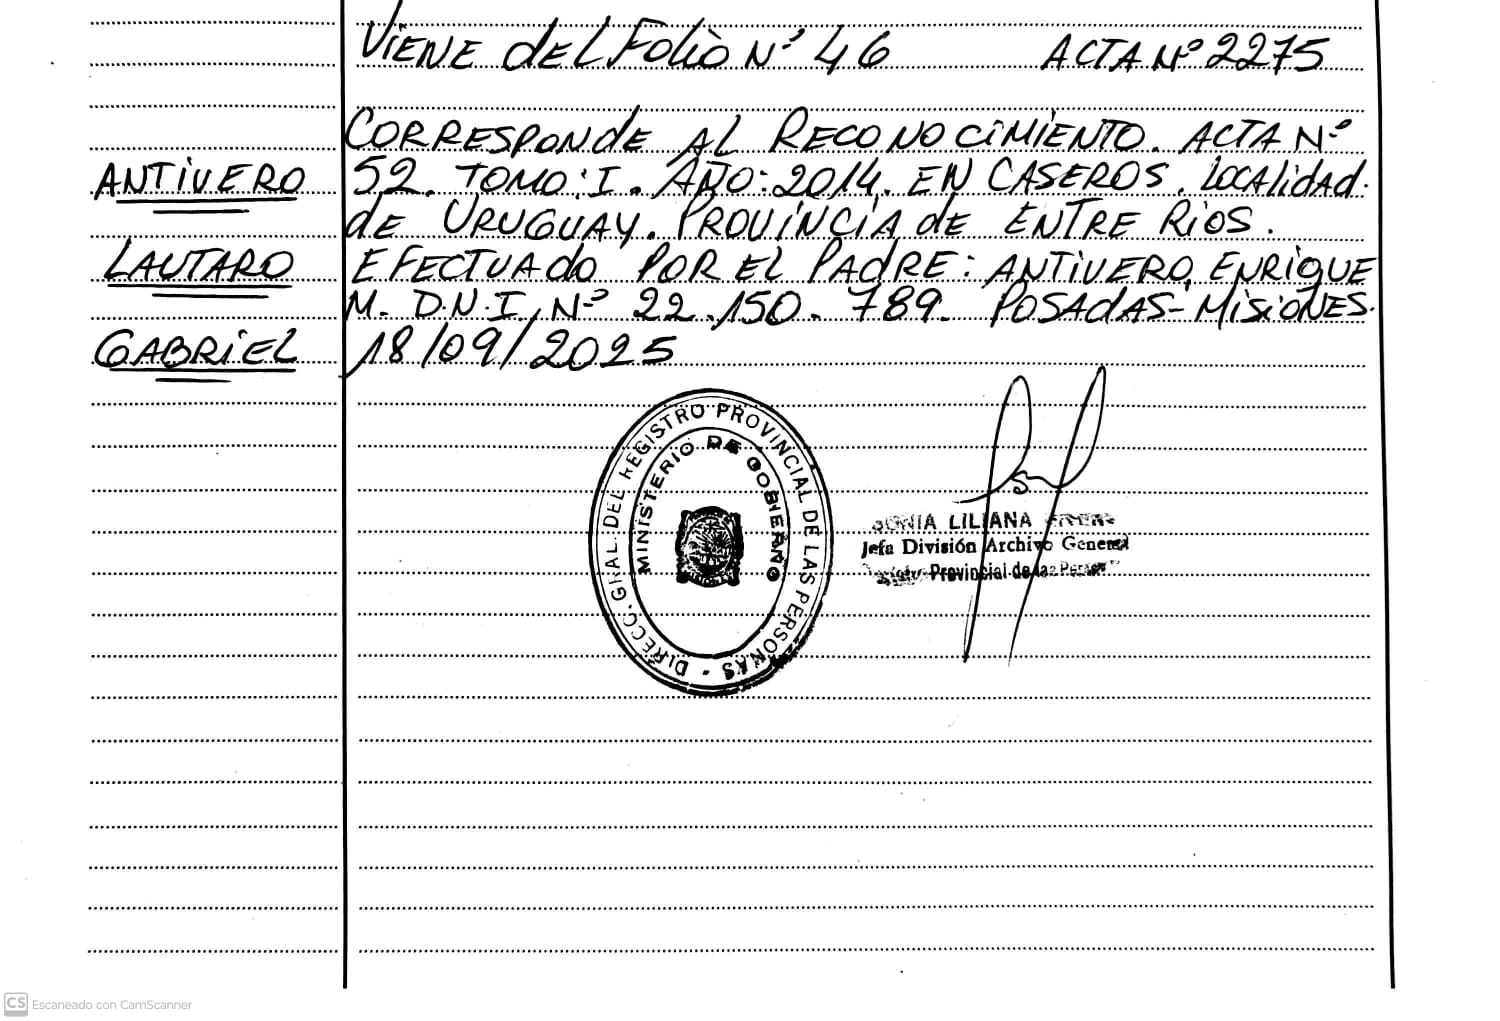 VIENE DEL FOLIO Nº 46 ACTA Nº 2275
CORRESPONDE AL RECONOCIMIENTO. ACTA Nº
ANTIVERO 52. TOMO: I. AÑO: 2014. EN CASEROS. LOCALIDAD.
DE URUGUAY. PROVINCIA DE ENTRE RIOS.
LAUTARO EFECTUADO POR EL PADRE: ANTIVERO, ENRIQUE
M. D.N.I. Nº 22.150.789. POSADAS-MISIONES.
GABRIEL 18/09/2025
DIRECC. GRAL. DEL REGISTRO PROVINCIAL DE LAS PERSONAS -
MINISTERIO DE GOBIERNO
SONIA LILIANA
Jefa División Archivo General
Provincial de las
CS Escaneado con CamScanner